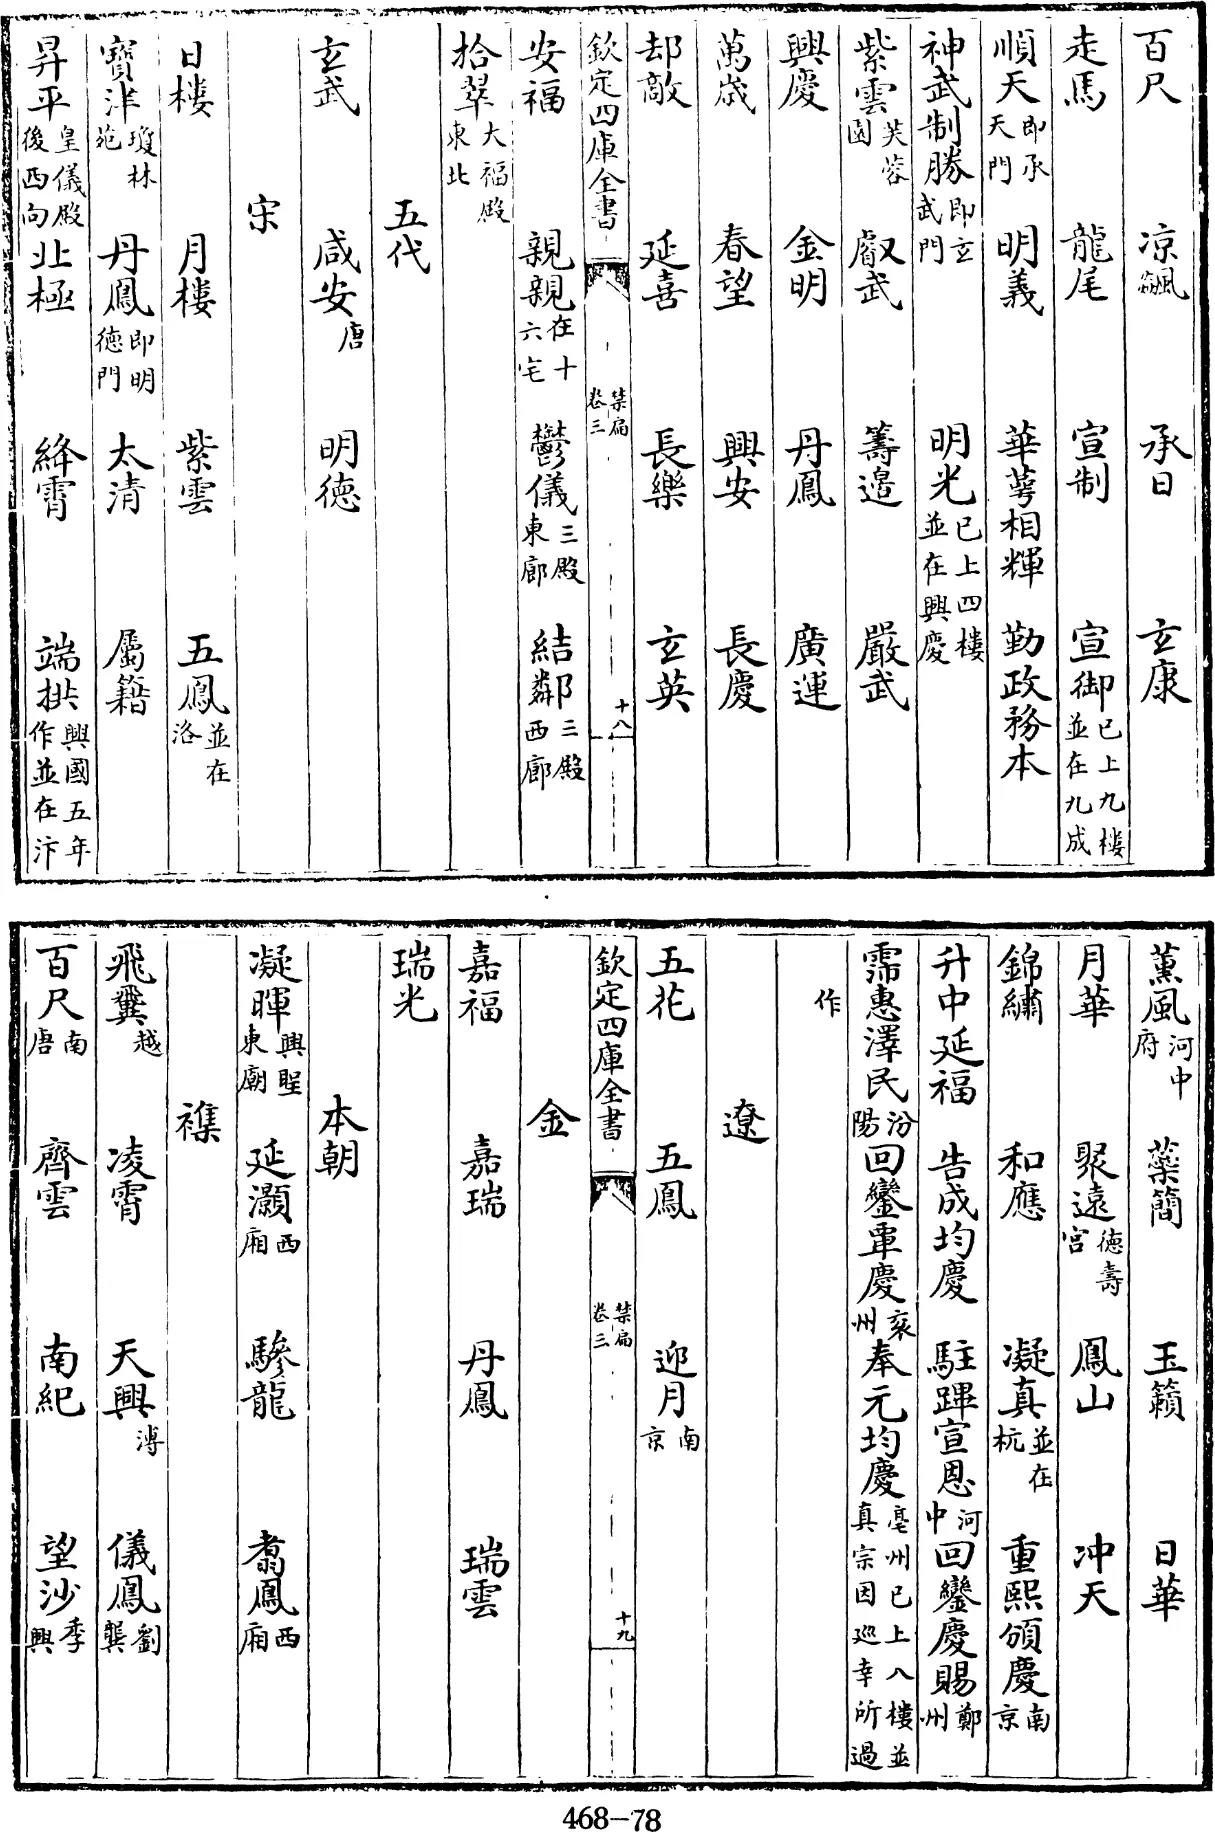 百尺 凉颻 承日 玄康
走馬 龍尾 宣制 宣御已上九樓並在九成
順天即承天門 明義 華萼相輝 勤政務本
神武制勝即玄武門 明光已上四樓並在興慶
紫雲芙蓉園 叡武 籌邊 嚴武
興慶 金明 丹鳳 廣運
萬歲 春望 興安 長慶
却敵 延喜 長樂 玄英
欽定四庫全書 禁扁卷三 十八
安福 親親在十六宅 鬱儀三殿東廊 結鄰三殿西廊
拾翠大福殿東北
五代
玄武 咸安唐 明德
宋
日樓 月樓 紫雲 五鳳並在洛
寶津瓊林苑 丹鳳即明德門 太清 屬籍
昇平皇儀殿後西向 北極 絳霄 端拱興國五年作並在汴
薰風河中府 蘂簡 玉籟 日華
月華 聚遠德壽宮 鳳山 冲天
錦繡 和應 凝真並在杭 重熙頒慶南京
升中延福 告成均慶 駐蹕宣恩河中 回鑾慶賜鄭州
霈惠澤民汾陽 回鑾覃慶兖州 奉元均慶亳州已上八樓並真宗因巡幸所過
作
遼
五花 五鳳 迎月南京
欽定四庫全書 禁扁卷三 十九
金
嘉福 嘉瑞 丹鳳 瑞雲
瑞光
本朝
凝暉興聖東廟 延灝西廂 驂龍 翥鳳西廂
襍
飛翼越 凌霄 天興溥 儀鳳劉龔
百尺南唐 齊雲 南紀 望沙季興
468-78